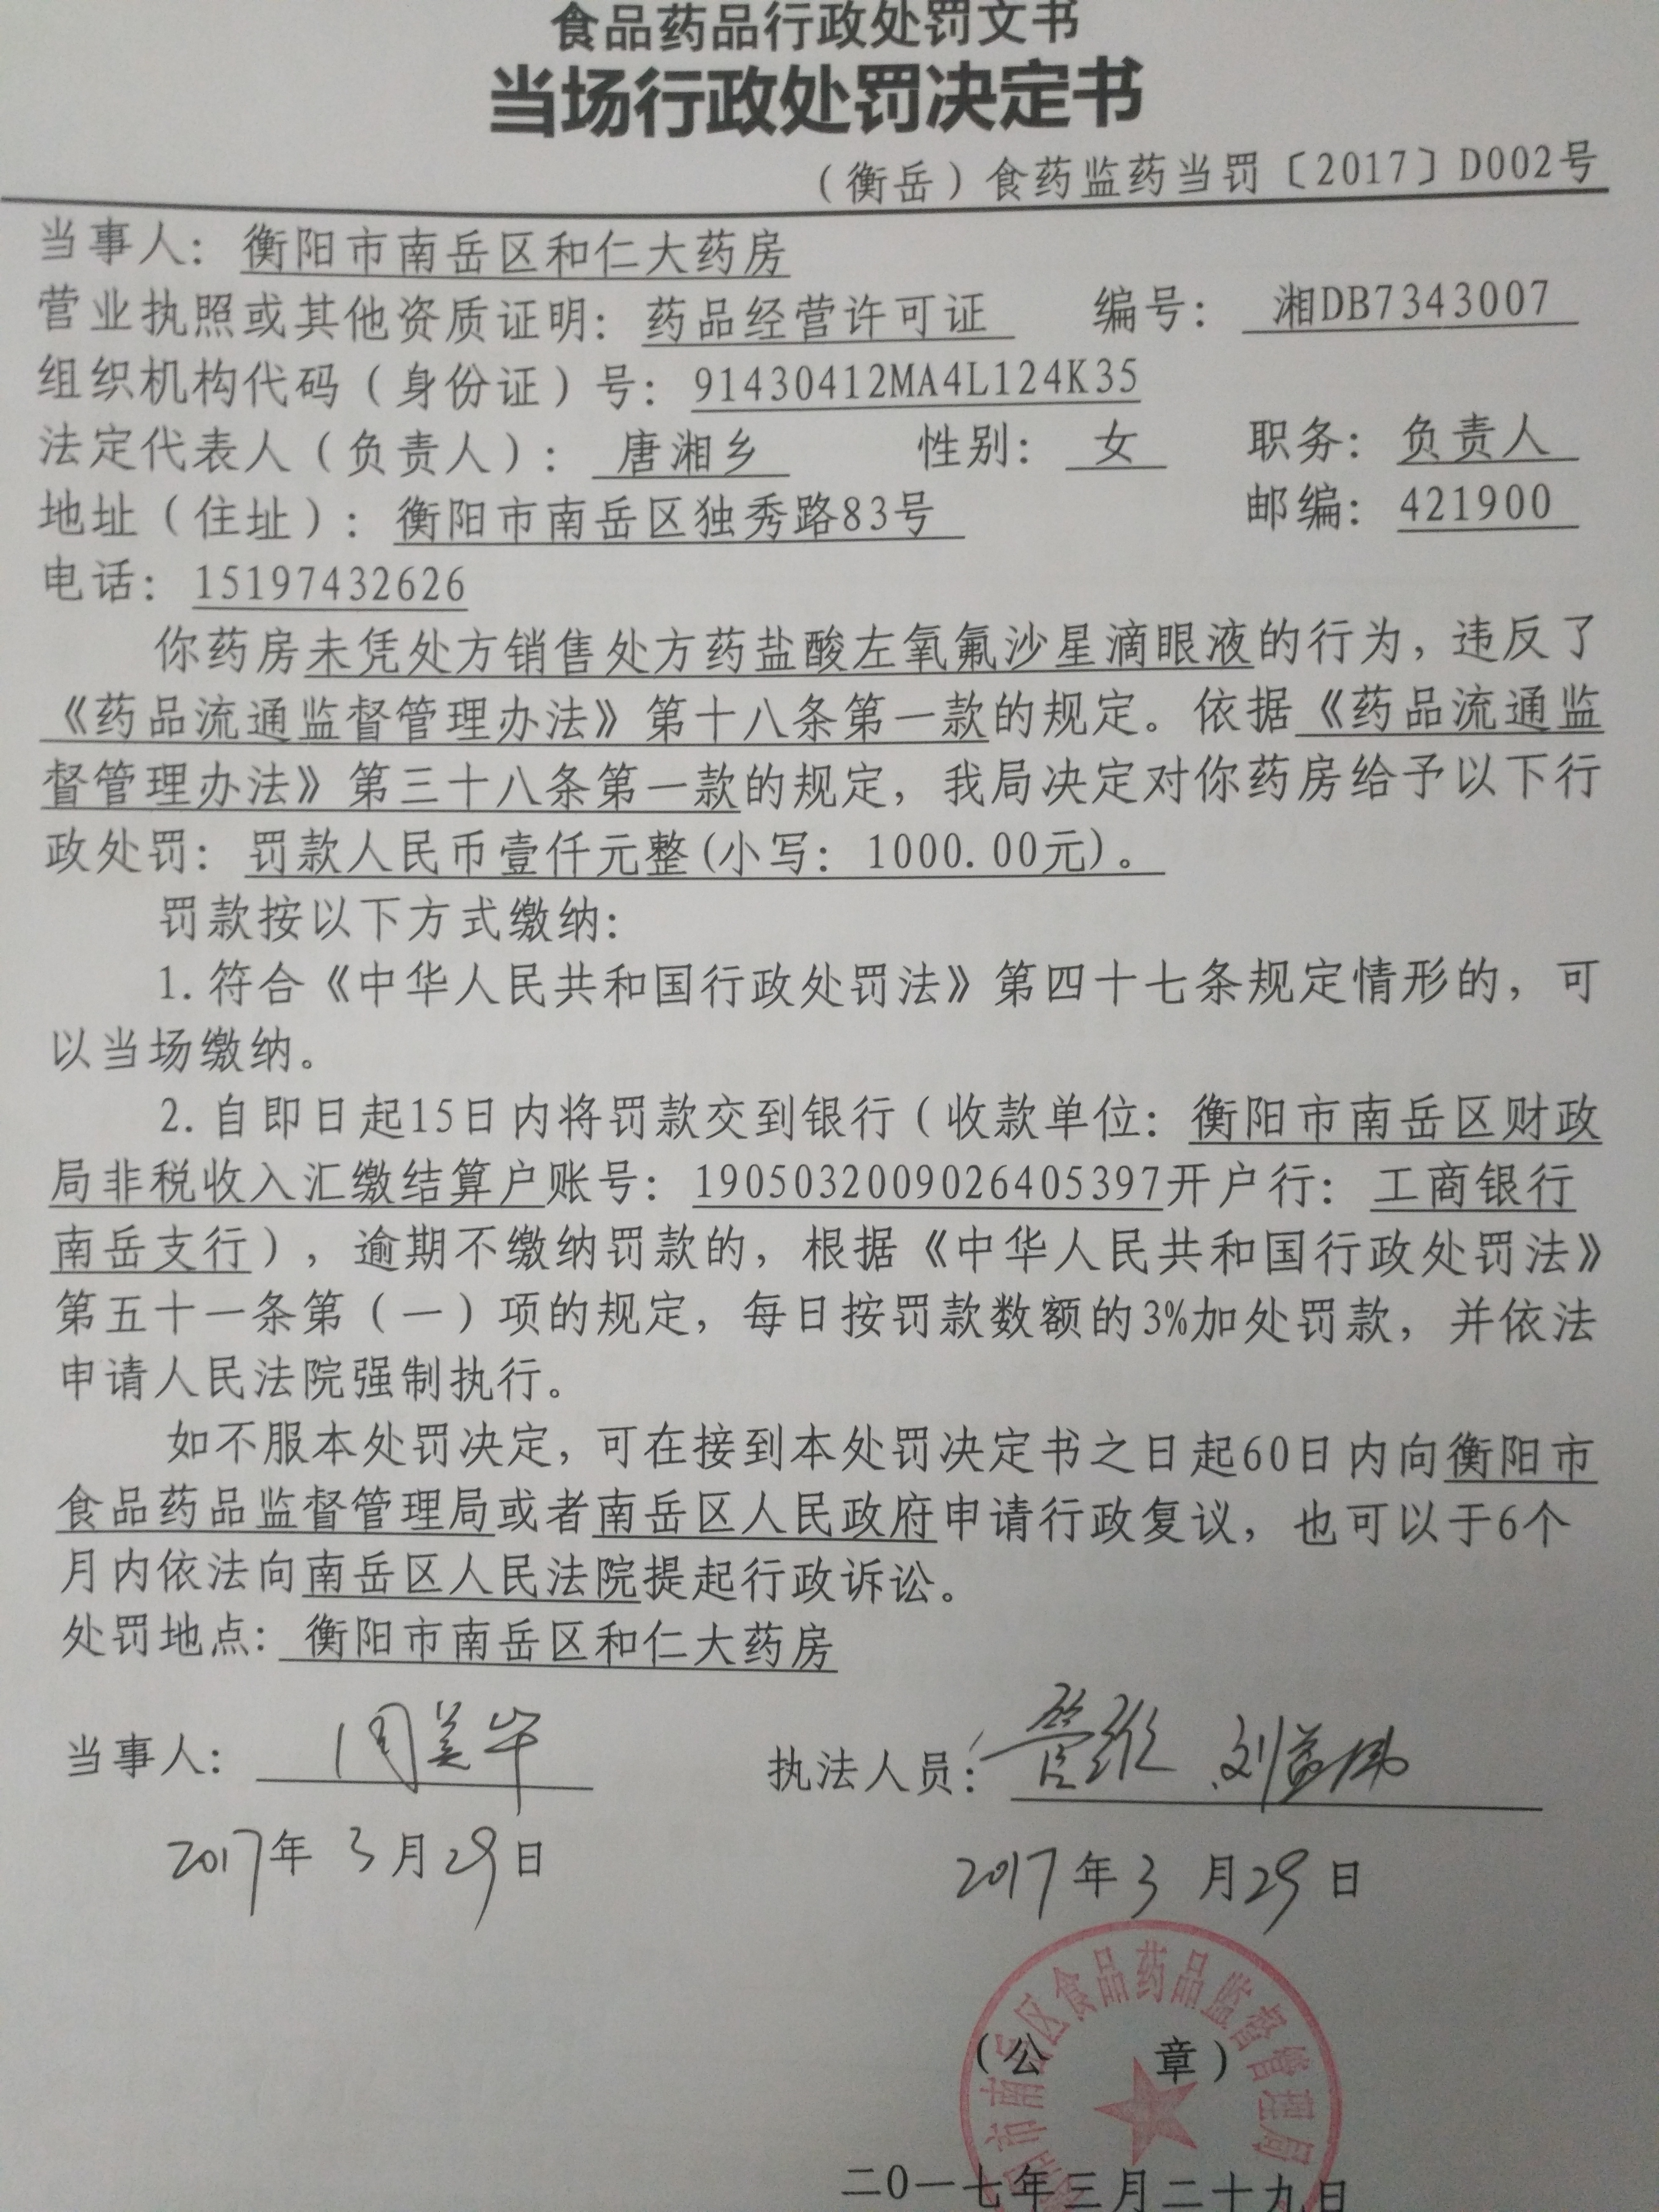 食品药品行政处罚文书
当场行政处罚决定书
（衡岳）食药监药当罚〔2017〕D002号
当事人：衡阳市南岳区和仁大药房
营业执照或其他资质证明：药品经营许可证 编号：湘DB7343007
组织机构代码（身份证）号：91430412MA4L124K35
法定代表人（负责人）：唐湘乡 性别：女 职务：负责人
地址（住址）：衡阳市南岳区独秀路83号 邮编：421900
电话：15197432626
你药房未凭处方销售处方药盐酸左氧氟沙星滴眼液的行为，违反了
《药品流通监督管理办法》第十八条第一款的规定。依据《药品流通监
督管理办法》第三十八条第一款的规定，我局决定对你药房给予以下行
政处罚：罚款人民币壹仟元整(小写：1000.00元)。
罚款按以下方式缴纳：
1.符合《中华人民共和国行政处罚法》第四十七条规定情形的，可
以当场缴纳。
2.自即日起15日内将罚款交到银行（收款单位：衡阳市南岳区财政
局非税收入汇缴结算户账号：1905032009026405397开户行：工商银行
南岳支行），逾期不缴纳罚款的，根据《中华人民共和国行政处罚法》
第五十一条第（一）项的规定，每日按罚款数额的3%加处罚款，并依法
申请人民法院强制执行。
如不服本处罚决定，可在接到本处罚决定书之日起60日内向衡阳市
食品药品监督管理局或者南岳区人民政府申请行政复议，也可以于6个
月内依法向南岳区人民法院提起行政诉讼。
处罚地点：衡阳市南岳区和仁大药房
当事人：周美华 执法人员：
2017年3月29日 2017年3月29日
阳市南岳区食品药品监督管理局
（公 章）
二0一七年三月二十九日